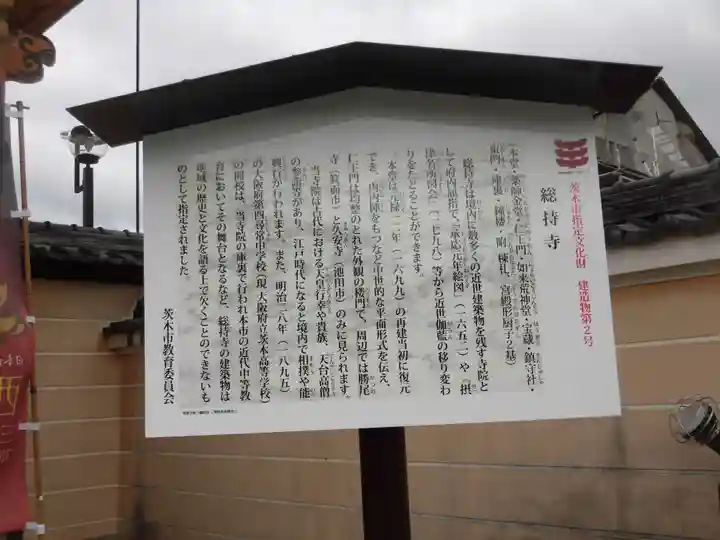 茨木市指定文化財　建造物第2号
総持寺
（本堂・薬師金堂・仁王門・如来荒神堂・宝蔵・鎮守社・
東門・
棟札、宮殿形厨子2基）
総持寺は境内に数多くの近世建築物を残す寺院と
して府内屈指で、「承応元年絵図」（一六五二）や「摂
津名所図会」（一七九八）等から近世伽藍の移り変わ
りをたどることができます。
本堂は元禄一二年（一六九九）の再建当初に復元
でき、内外陣をもつなど中世的な平面形式を伝え、
仁王門は均整のとれた外観の楼門で、周辺では勝尾
寺（箕面市）と久安寺（池田市）のみに見られます。
当寺院は古代における天皇行幸や貴族、天台高僧
の参詣等があり、江戸時代になると境内で相撲や能
興行が行われます。また、明治二八年（一八九五）
の大阪府第四尋常中学校（現 大阪府立茨木高等学校）
の開校は、当寺院の庫裏で行われ本市の近代中等教
育においてその舞台となるなど、総持寺の建築物は
地域の歴史と文化を語る上で欠くことのできないも
のとして指定されました。
茨木市教育委員会
西